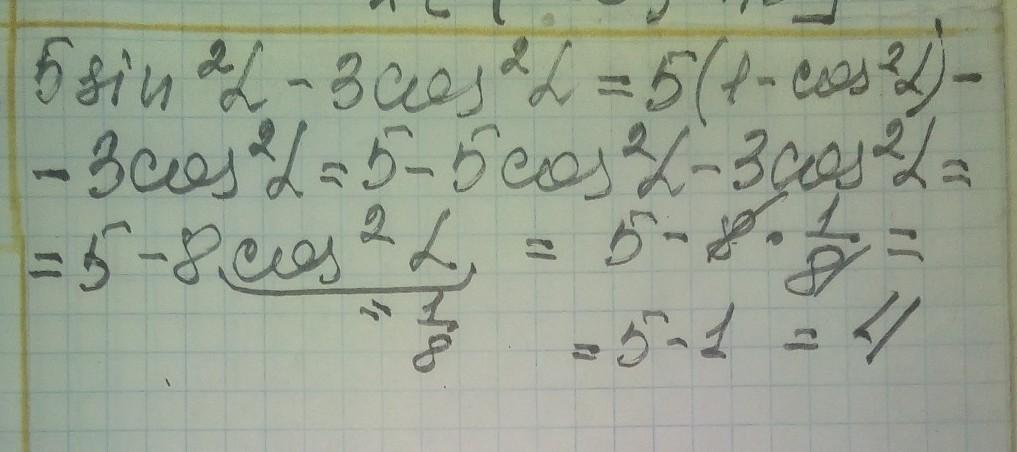 5 sin²α - 3cos²α = 5(1 - cos²α) -
- 3cos²α = 5 - 5cos²α - 3cos²α =
= 5 - 8cos²α = 5 - 8 · 1/8 =
= 1/8
= 5 - 1 = 4